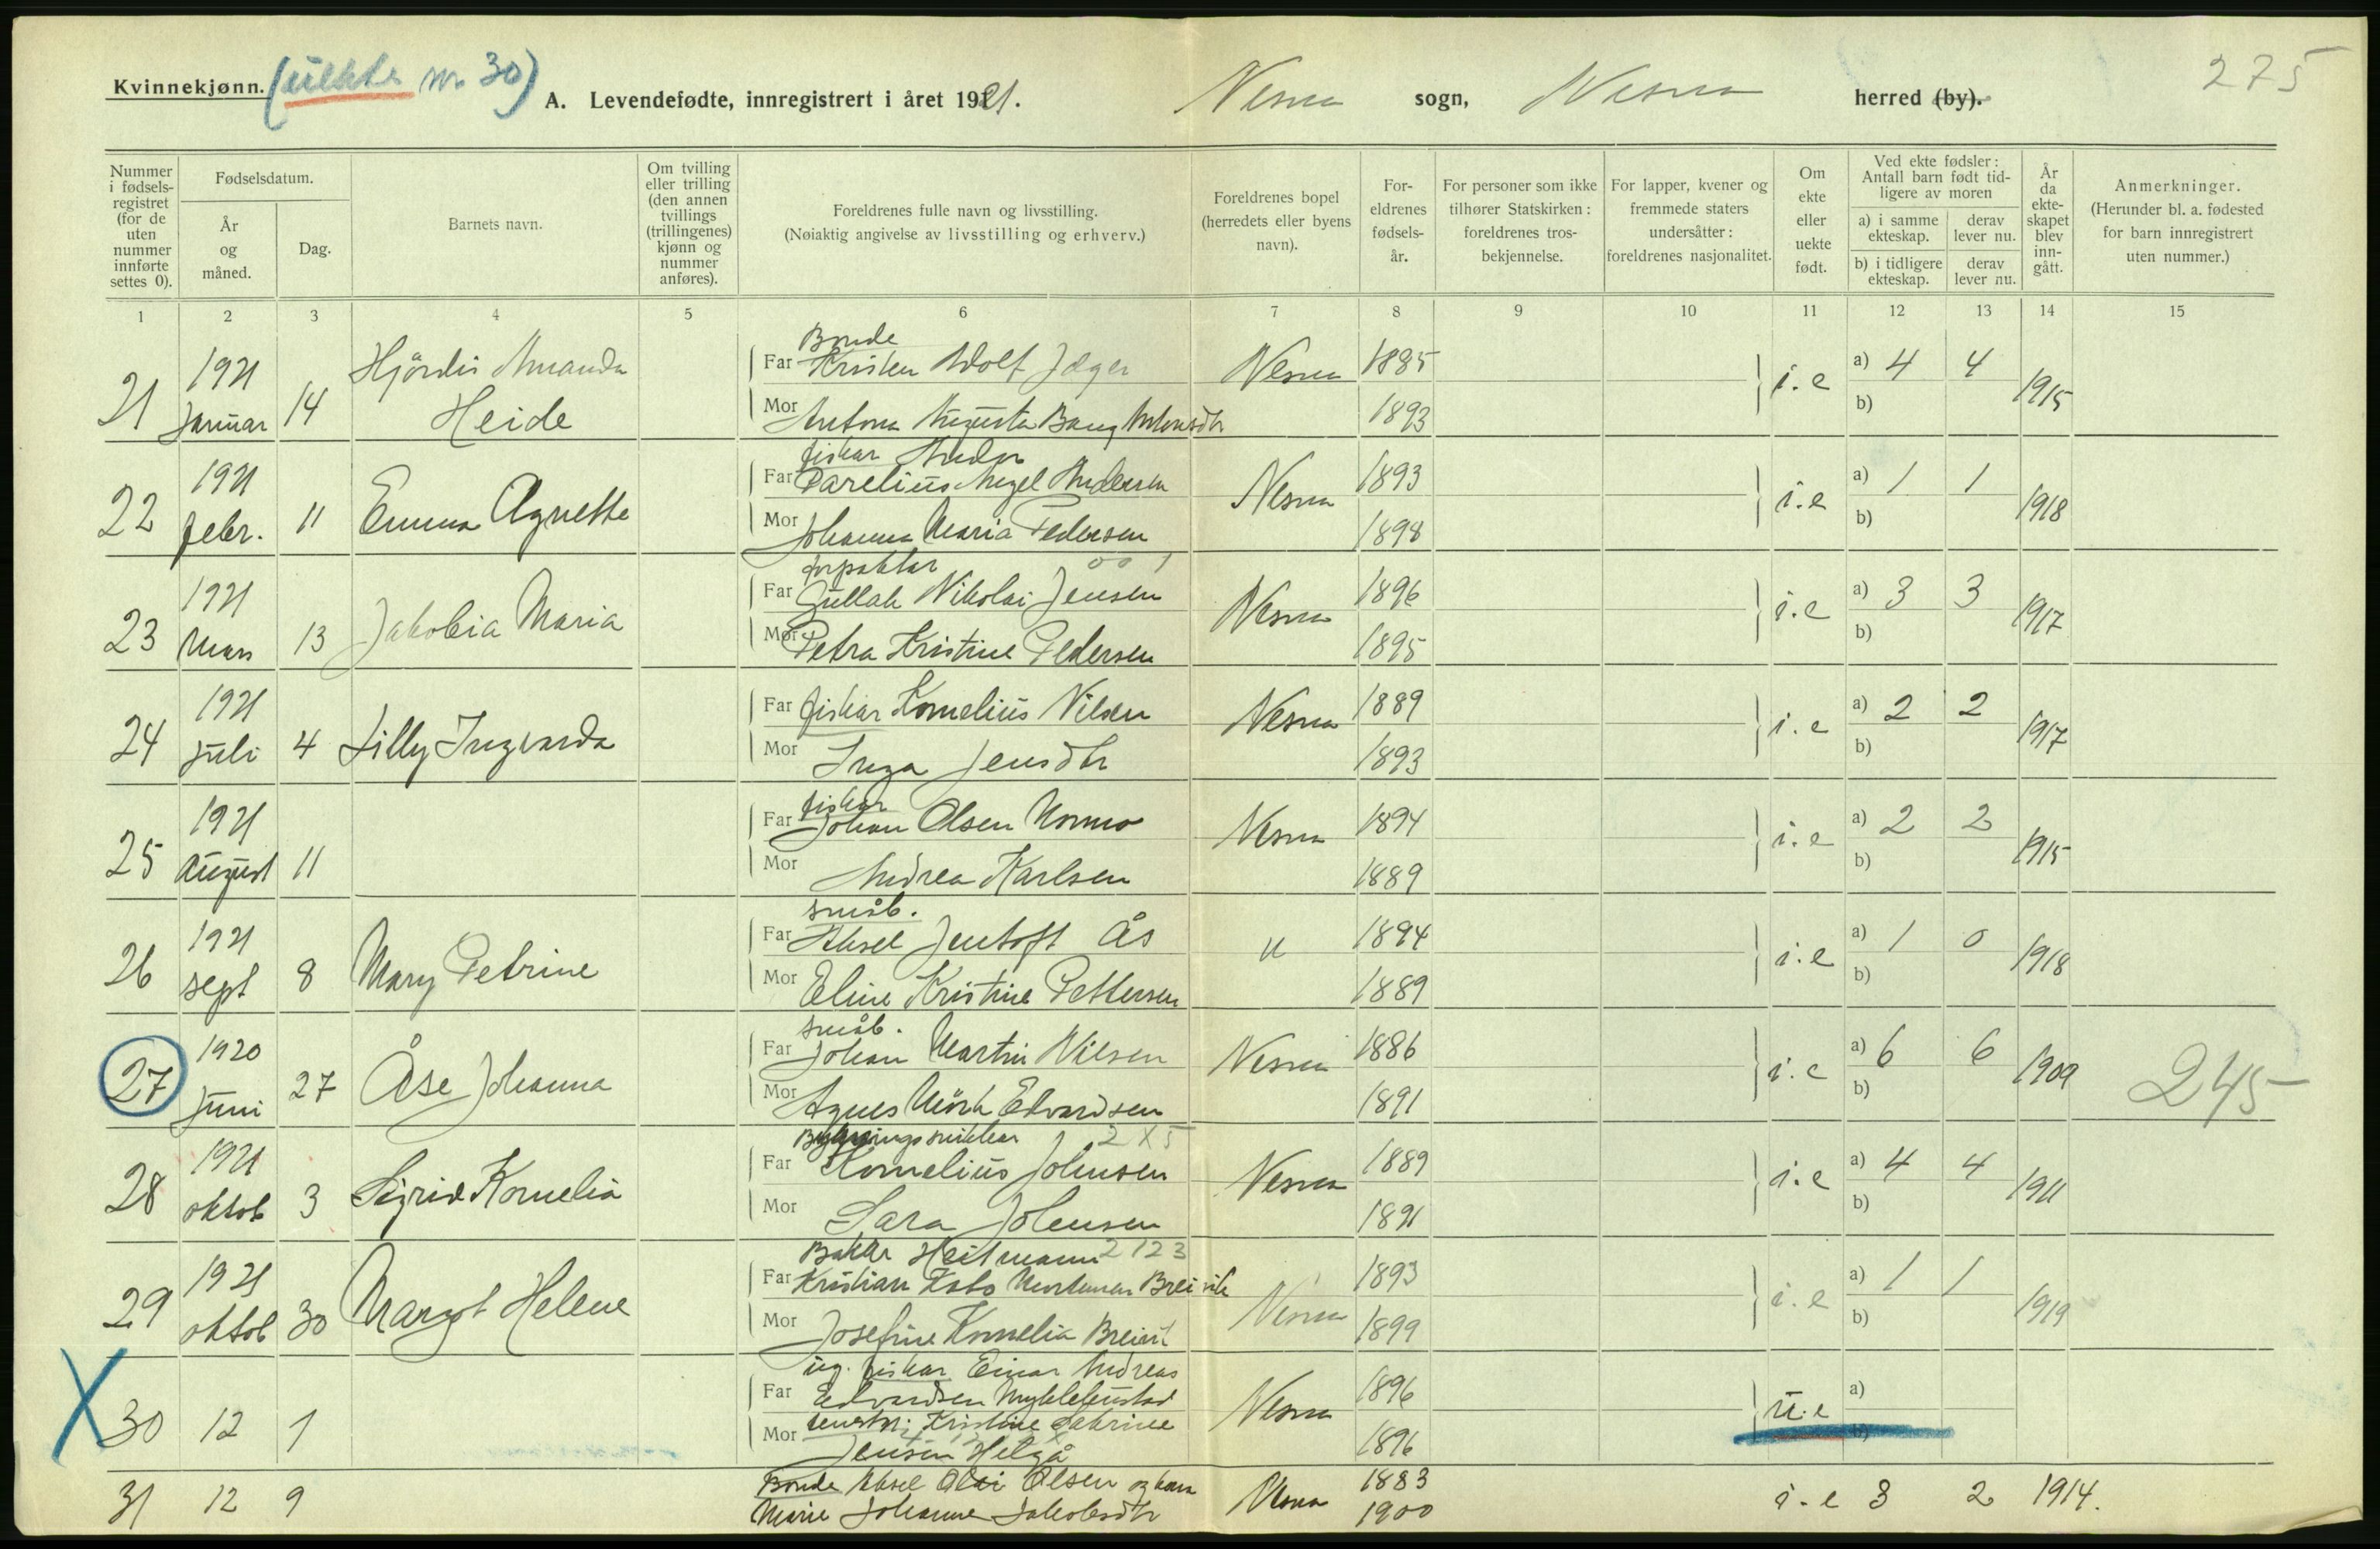 Kvinnekjønn. (uekte nr 30)
A. Levendefødte, innregistrert i året 1921. Nesna sogn, Nesna herred (by).
275
Nummer i fødsels-registret (for de uten nummer innførte settes 0).
Fødselsdatum.
År og måned.
Dag.
Barnets navn.
Om tvilling eller trilling (den annen tvillings (trillingenes) kjønn og nummer anføres).
Foreldrenes fulle navn og livsstilling.
(Nøiaktig angivelse av livsstilling og erhverv.)
Foreldrenes bopel (herredets eller byens navn).
For-eldrenes fødsels-år.
For personer som ikke tilhører Statskirken: foreldrenes tros-bekjennelse.
For lapper, kvener og fremmede staters undersåtter: foreldrenes nasjonalitet.
Om ekte eller uekte født.
Ved ekte fødsler: Antall barn født tid-ligere av moren
a) i samme ekteskap. derav lever nu.
b) i tidligere ekteskap. derav lever nu.
År da ekte-skapet blev inn-gått.
Anmerkninger.
(Herunder bl. a. fødested for barn innregistrert uten nummer.)
1 2 3 4 5 6 7 8 9 10 11 12 13 14 15
21 1921 Januar 14 Hjördis Amanda Heide
Bonde
Far Kristen Adolf Jæger Nesna 1885 i.e a) 4 4 1915
Mor Antona Augusta Bang Antonsdtr 1893 b)
22 1921 febr. 11 Emma Agnette
fisker
Far Parelius Angel Andersen Nesna 1893 i.e a) 1 1 1918
Mor Johanna Maria Pedersen 1898 b)
23 1921 Mars 13 Jakobia Maria
forpakter
Far Gullak Nikolai Jensen Nesna 1896 i.e a) 3 3 1917
Mor Petra Kristine Pedersen 1895 b)
24 1921 juli 4 Lilly Ingvarda
Far fisker Kornelius Nilsen Nesna 1889 i.e a) 2 2 1917
Mor Inga Jensdtr 1893 b)
25 1921 August 11
fisker
Far Johan Olsen Nesna 1894 i.e a) 2 2 1915
Mor Andrea Karlsen 1889 b)
26 1921 sept 8 Mary Petrine
småb.
Far Aksel Jentoft Ås " 1894 i.e a) 1 0 1918
Mor Eline Kristine Pettersen 1889 b)
27 1920 Juni 27 Åse Johanna
småb.
Far Johan Martin Nilsen Nesna 1886 i.e a) 6 6 1909 245
Mor Agnes Mörk Edvardsen 1891 b)
28 1921 oktob 3 Sigrid Kornelia
Bygningssnikker 2 X 5
Far Kornelius Johnsen Nesna 1889 i.e a) 4 4 1911
Mor Sara Johnsen 1891 b)
29 1921 oktob 30 Margot Helene
Baker Heitmann 2 123
Far Kristian Breivik Nesna 1893 i.e a) 1 1 1919
Mor Josefine Kornelia Breivik 1899 b)
X 30 12 1
ug. fisker Einar Andreas
Far Edvardsen Myklebustad Nesna 1896 u.e a)
Mor Kristine
Jensen Helgå 1896 b)
31 12 9 Bonde Aksel Olai Olsen og kona Nesna 1883 i.e 3 2 1914.
Marie Johanne Jakobsdtr 1900